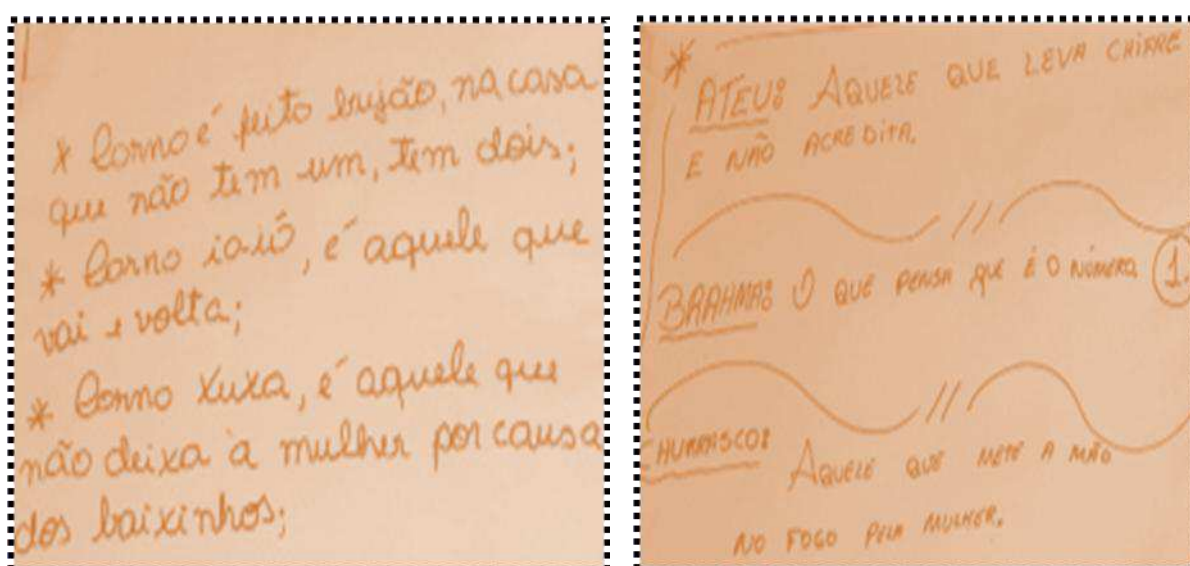 * Corno é feito bujão, na casa
que não tem um, tem dois;
* Corno ioiô, é aquele que
vai e volta;
* Corno xuxa, é aquele que
não deixa a mulher por causa
dos baixinhos;
* ATEU: AQUELE QUE LEVA CHIFRE
E NÃO ACREDITA.
BRAHMA: O QUE PENSA QUE É O NÚMERO 1.
CHURRASCO: AQUELE QUE METE A MÃO
NO FOGO PELA MULHER.